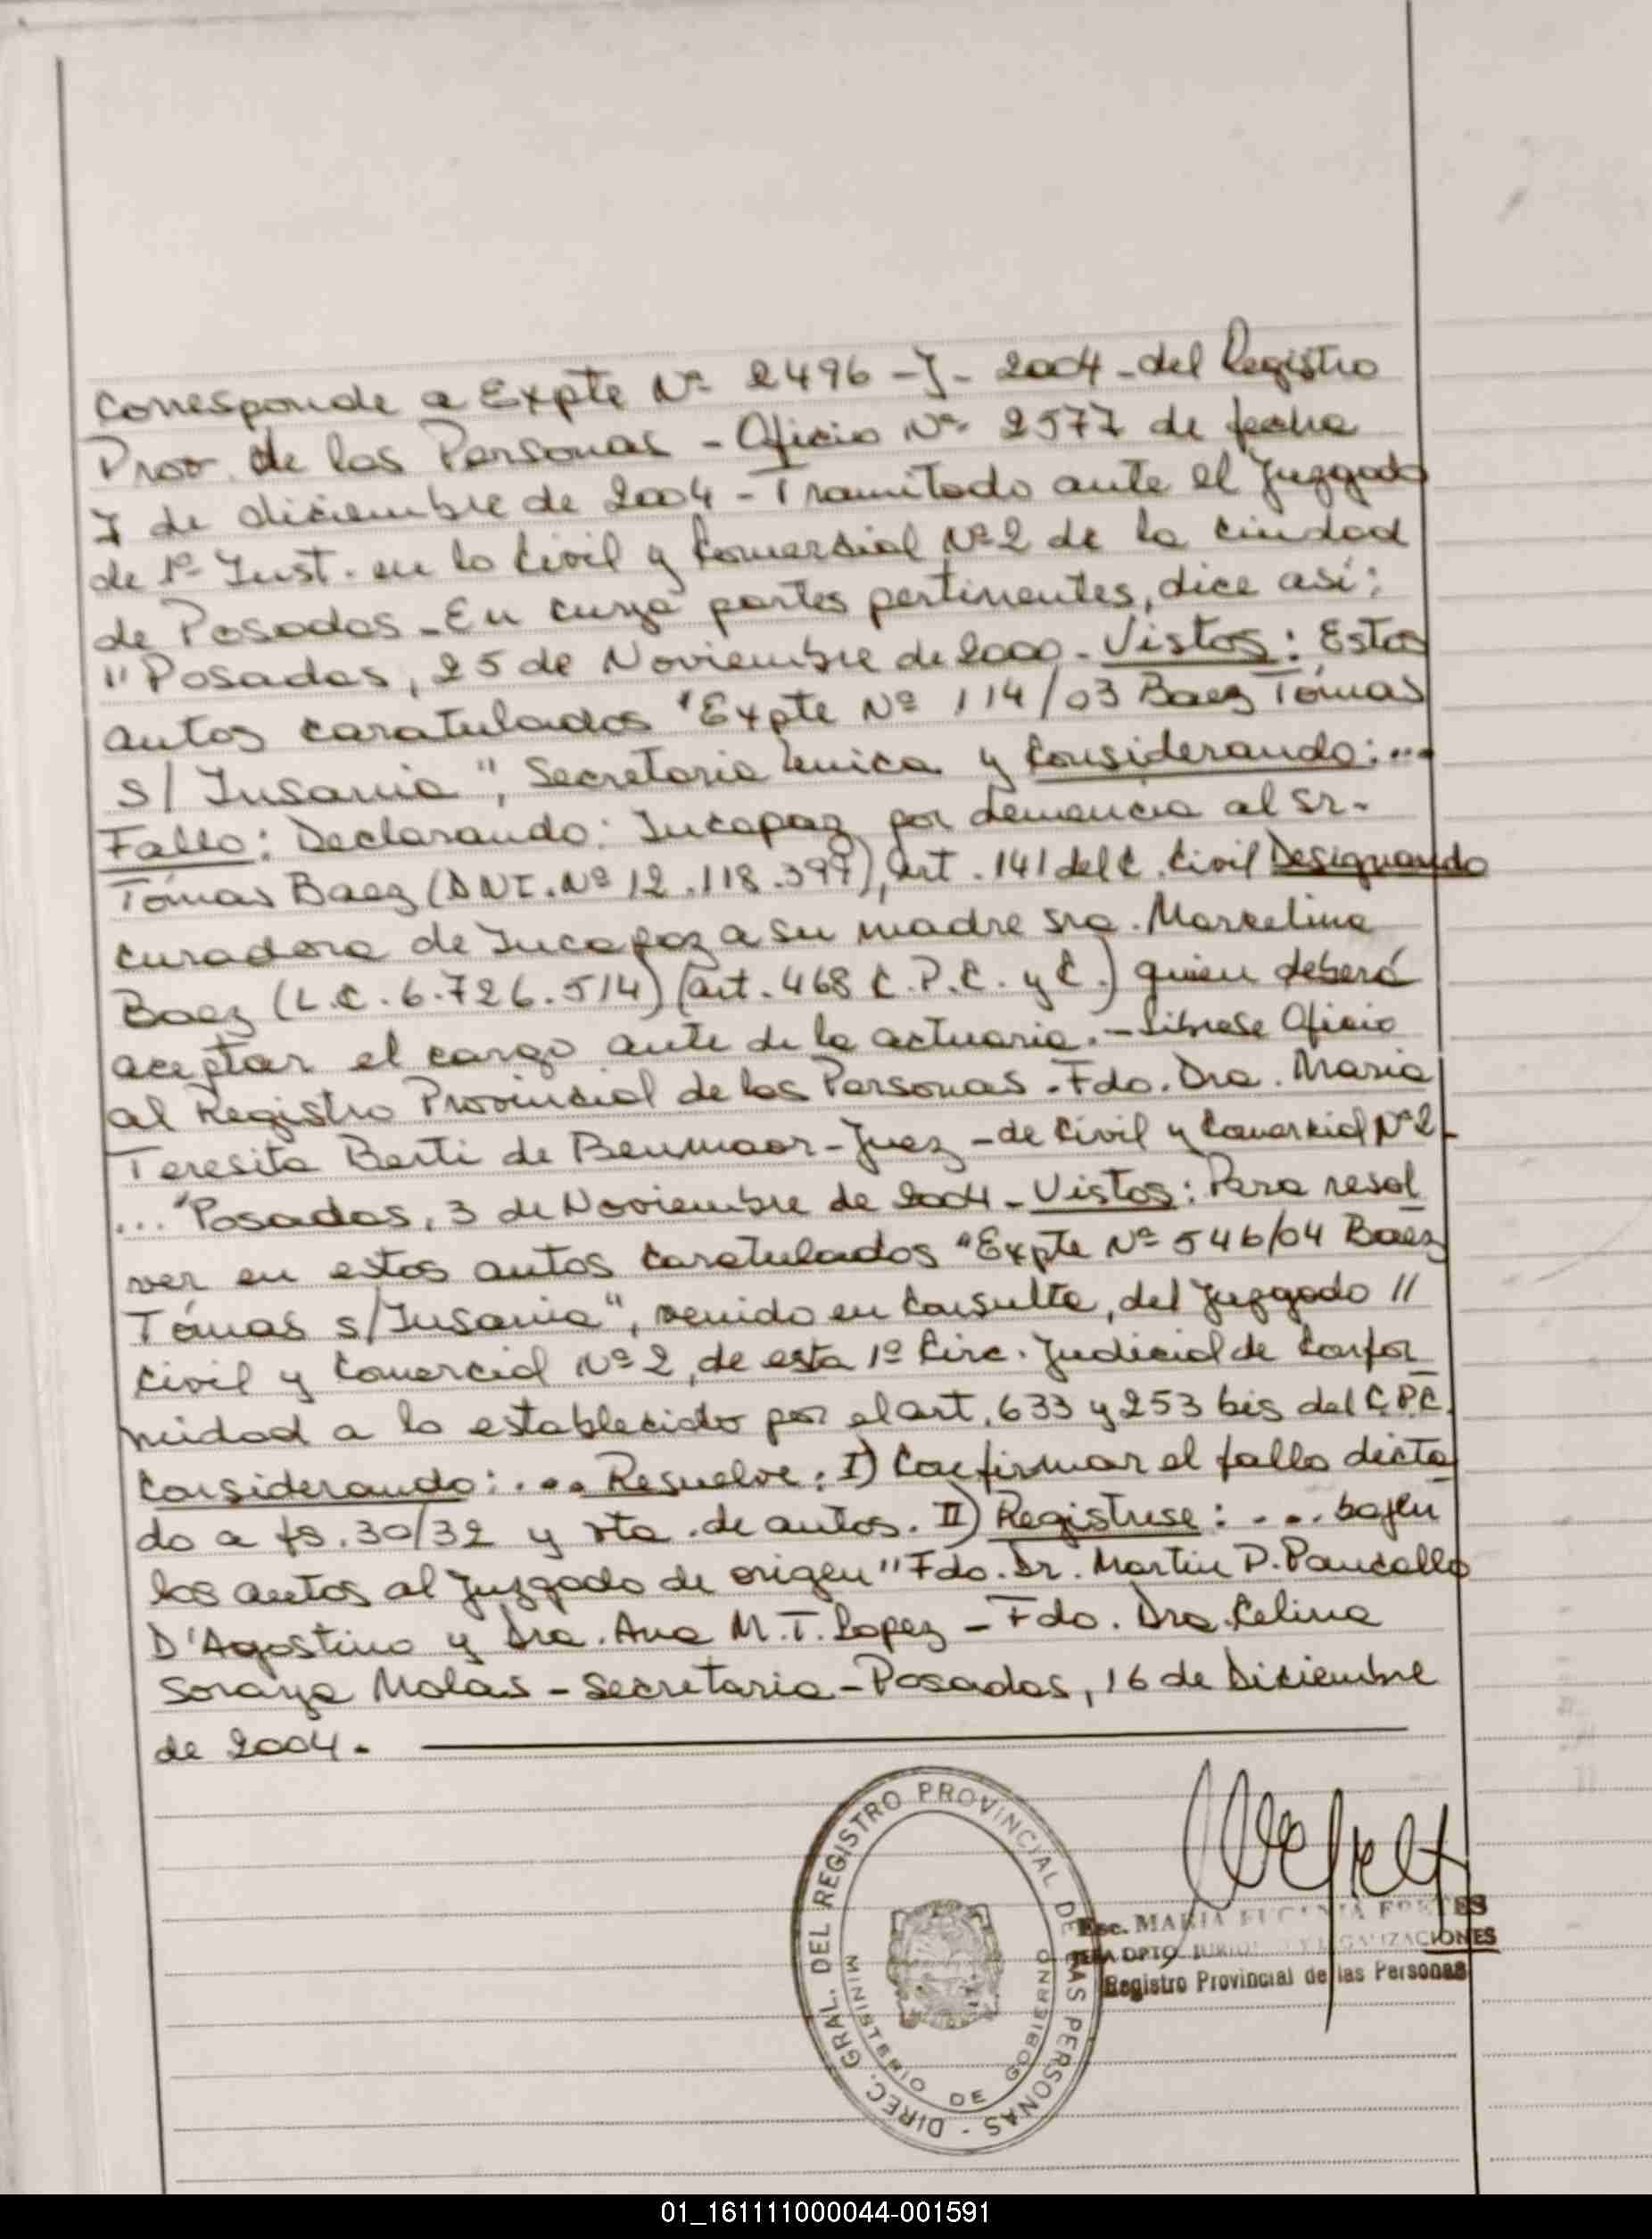 Corresponde a Expte Nº 2496 - J - 2004 - del Registro
Prov. de las Personas - Oficio Nº 2577 de fecha
7 de diciembre de 2004 - Tramitado ante el Juzgado
de 1º Inst. en lo Civil y Comercial Nº 2 de la ciudad
de Posadas - En cuya partes pertinentes, dice así:
"Posadas, 25 de Noviembre de 2000 - Vistos: Estos
autos caratulados "Expte Nº 114/03 Baez Tómas
s/ Insania", Secretaria Unica y Considerando:...
Fallo: Declarando: Incapaz por demencia al Sr.
Tómas Baez (DNI. Nº 12.118.397), art. 141 del C. Civil Designando
curadora de Incapaz a su madre sra. Marcelina
Baez (L.C. 6.726.514) (art. 468 C.P.C. y C.) quien deberá
aceptar el cargo ante de la actuaria. - Líbrese Oficio
al Registro Provincial de las Personas. Fdo. Dra. Maria
Teresita Berti de Benmaor - Juez - de Civil y Comercial Nº 2 -
... "Posadas, 3 de Noviembre de 2004 - Vistos: Para resol
ver en estos autos caratulados "Expte Nº 546/04 Baez
Tómas s/Insania", venido en Consulta, del Juzgado //
Civil y Comercial Nº 2, de esta 1º Circ. Judicial de Confor
midad a lo establecido por el art. 633 y 253 bis del C.P.C.
Considerando: ... Resuelve: I) Confirmar el fallo dicta
do a fs. 30/32 y vta. de autos. II) Registrese: ... bajen
los autos al Juzgado de origen" Fdo. Dr. Martin P. Pancallo
D'Agostino y Dra. Ana M. T. Lopez - Fdo. Dra. Celina
Soraya Molas - Secretaria - Posadas, 16 de Diciembre
de 2004.
DIREC. GRAL. DEL REGISTRO PROVINCIAL DE LAS PERSONAS -
MINISTERIO DE GOBIERNO
Esc. MARIA EUGENIA FRETES
JEFA DPTO. JURIDICO Y LEGALIZACIONES
Registro Provincial de las Personas
01_161111000044-001591